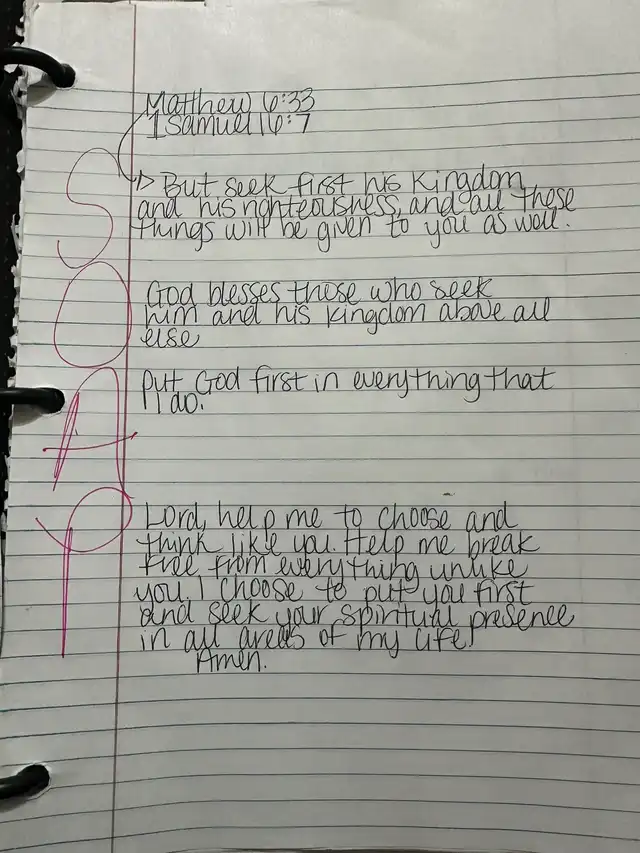 Matthew 6:33
1 Samuel 16:7
S
But seek first his kingdom
and his righteousness, and all these
things will be given to you as well.
O
God blesses those who seek
him and his kingdom above all
else
A
Put God first in everything that
I do.
P
Lord, help me to choose and
think like you. Help me break
free from everything unlike
you. I choose to put you first
and seek your spiritual presence
in all areas of my life!
Amen.